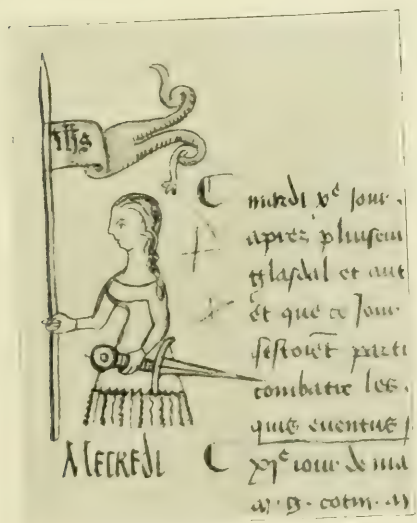 Ihs
mardi xe jour
apres plusieu
glasdal et aut
et que ce jour
sestoiēt parti
combatre les
quis eventus
MECREDI
xje jour de ma